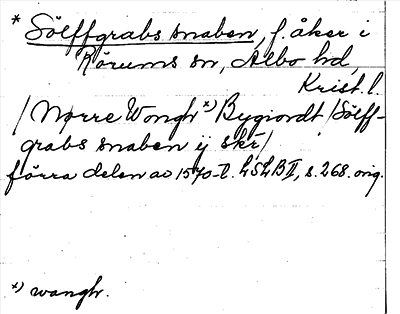 * Sölffgrabs snaben, f. åker i
Rörums sn, Albo hd,
Krist. l.
/Nørre Wongh *) Bygiordt/Sölff-
grabs snaben ij skr/
förra delen av 1570-t. LSLB II, s. 268. orig.
*) wangh.